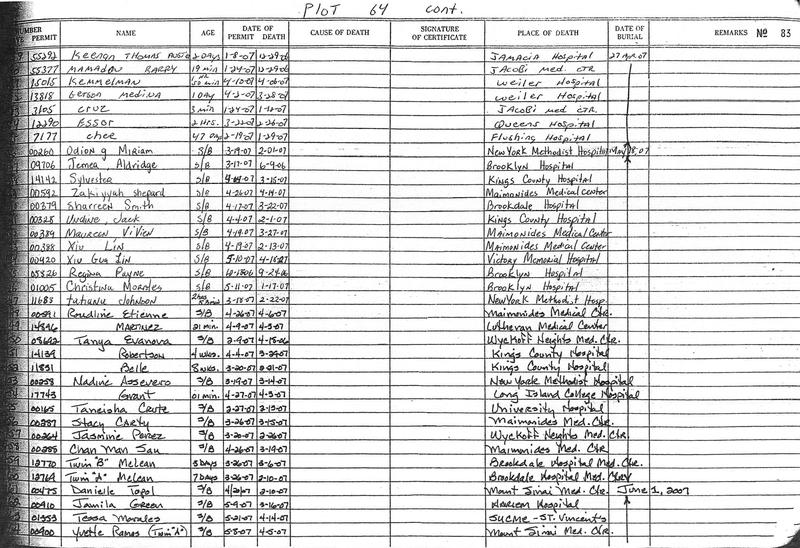 PLOT 64 cont.
NUMBER PERMIT NAME AGE DATE OF PERMIT DEATH CAUSE OF DEATH SIGNATURE OF CERTIFICATE PLACE OF DEATH DATE OF BURIAL REMARKS No 83
55292 Keenan Thomas 2 Days 1-8-07 12-29-06 JAMACIA Hospital 27 Apr 07
55377 MAMADOU BARRY 19 min 1-24-07 JACOBI med. CTR.
15015 Kemmelman 4-10-07 4-06-07 weiler Hospital
13818 Gerson medina 1 DAY 4-2-07 3-28-07 weiler Hospital
3105 CRUZ 3 min 1-24-07 JACOBI med CTR.
12290 Essor 2 Hrs. 3-22-07 2-26-07 Queens Hospital
7177 Chee 47 Days 2-19-07 1-29-07 Flushing Hospital
00260 Odion g Miriam S/B 3-19-07 2-01-07 New York Methodist Hospital
09706 Jemea, Aldridge S/B 3-17-07 6-9-06 Brooklyn Hospital
14142 Sylvester S/B 3-15-07 Kings County Hospital
00592 Zakiyyah Shepard S/B 4-26-07 4-14-07 Maimonides Medical center
00379 Sharreen Smith S/B 4-17-07 3-22-07 Brookdale Hospital
00328 Undine, Jack S/B 4-4-07 2-1-07 Kings County Hospital
00389 Maureen ViVien S/B 4-19-07 3-27-07 Maimonides Medical Center
00388 Xiu Lin S/B 4-19-07 2-13-07 Maimonides Medical Center
00420 Xiu Gua Lin S/B 5-10-07 Victory Memorial Hospital
05826 Regina Payne S/B 9-24-06 Brooklyn Hospital
01005 Christina Morales S/B 5-11-07 1-17-07 Brooklyn Hospital
11685 tahanu Johnson 3-18-07 2-22-07 New York Methodist Hosp.
00591 Roudline Etienne F/B 4-26-07 4-6-07 Maimonides Medical Ctr.
14896 MARTINEZ 21 min. 4-9-07 4-5-07 Lutheran Medical Center
08692 Tanya Evanova F/B 2-9-07 Wyckoff Heights Med. Ctr.
14139 Robertson 4 wks. 4-4-07 3-29-07 Kings County Hospital
11831 Belle 8 wks. 3-20-07 Kings County Hospital
00258 Nadine Assevero F/B 3-19-07 3-14-07 New York Methodist Hospital
17743 Grant 01 min. 4-27-07 4-3-07 Long Island College Hospital
00165 Taneisha Crute F/B 2-27-07 2-13-07 University Hospital
00287 Stacy Carty F/B 3-26-07 3-15-07 Maimonides Med. Ctr.
00264 Jasmine Perez F/B 3-20-07 2-26-07 Wyckoff Heights Med. Ctr.
00285 Chan Man San F/B 4-26-07 3-19-07 Maimonides Med. Ctr.
12770 Twin "B" McLean 3 Days 3-26-07 3-6-07 Brookdale Hospital Med. Ctr.
12769 Twin "A" McLean 7 Days 3-26-07 2-10-07 Brookdale Hospital Med. Ctr.
00475 Danielle Topol F/B 2-10-07 Mount Sinai Med. Ctr. June 1, 2007
00910 Jamila Green F/B 5-9-07 3-16-07 Harlem Hospital
01353 Tessa Morales F/B 5-21-07 4-14-07 SVCMC - ST. Vincent's
00900 Yvette Ramos (Twin "A") F/B 5-8-07 4-5-07 Mount Sinai Med. Ctr.